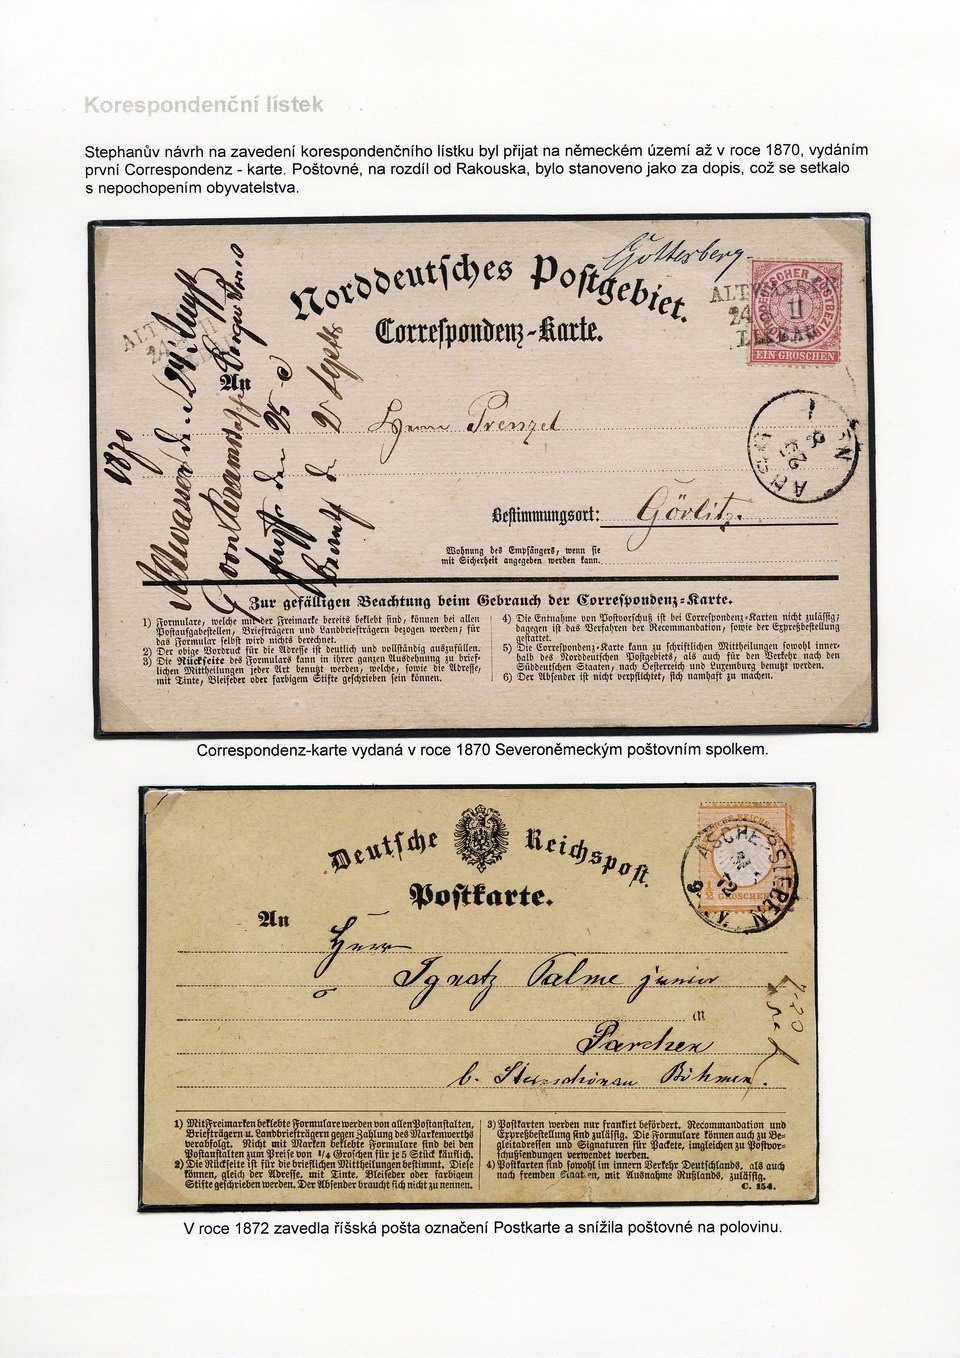 Korespondenční lístek
Stephanův návrh na zavedení korespondenčního lístku byl přijat na německém území až v roce 1870, vydáním
první Correspondenz - karte. Poštovné, na rozdíl od Rakouska, bylo stanoveno jako za dopis, což se setkalo
s nepochopením obyvatelstva.
Norddeutsches Postgebiet.
Correspondenz-Karte.
EIN GROSCHEN
An
1870
Herrn Prenzel
Bestimmungsort: Görlitz.
Wohnung des Empfängers, wenn sie
mit Sicherheit angegeben werden kann.
Zur gefälligen Beachtung beim Gebrauch der Correspondenz-Karte.
1) Formulare, welche mit der Freimarke bereits beklebt sind, können bei allen
Postaufgabestellen, Briefträgern und Landbriefträgern bezogen werden; für
das Formular selbst wird nichts berechnet.
2) Der obige Vordruck für die Adresse ist deutlich und vollständig auszufüllen.
3) Die Rückseite des Formulars kann in ihrer ganzen Ausdehnung zu brief-
lichen Mittheilungen jeder Art benutzt werden, welche, sowie die Adresse,
mit Tinte, Bleifeder oder farbigem Stifte geschrieben sein können.
4) Die Entnahme von Postvorschuß ist bei Correspondenz-Karten nicht zulässig;
dagegen ist das Verfahren der Recommandation, sowie der Expreßbestellung
gestattet.
5) Die Correspondenz-Karte kann zu schriftlichen Mittheilungen sowohl inner-
halb des Norddeutschen Postgebiets, als auch für den Verkehr nach den
Süddeutschen Staaten, nach Oesterreich und Luxemburg benutzt werden.
6) Der Absender ist nicht verpflichtet, sich namhaft zu machen.
Correspondenz-karte vydaná v roce 1870 Severoněmeckým poštovním spolkem.
Deutsche Reichspost.
Postkarte.
ASCHERSLEBEN
GROSCHEN
An
Herrn
Ignatz Palme junior
in
Parchen
b. Böhmen.
1) Mit Freimarken beklebte Formulare werden von allen Postanstalten,
Briefträgern u. Landbriefträgern gegen Zahlung des Markenwerths
verabfolgt. Nicht mit Marken beklebte Formulare sind bei den
Postanstalten zum Preise von 1/4 Groschen für je 5 Stück käuflich.
2) Die Rückseite ist für die brieflichen Mittheilungen bestimmt. Diese
können, gleich der Adresse, mit Tinte, Bleifeder oder farbigem
Stifte geschrieben werden. Der Absender braucht sich nicht zu nennen.
3) Postkarten werden nur frankirt befördert. Recommandation und
Expreßbestellung sind zulässig. Die Formulare können auch zu Be-
gleitadressen und Signaturen für Packete, imgleichen zu Postvor-
schußsendungen verwendet werden.
4) Postkarten sind sowohl im innern Verkehr Deutschlands, als auch
nach fremden Staaten, mit Ausnahme Rußlands, zulässig.
C. 154.
V roce 1872 zavedla říšská pošta označení Postkarte a snížila poštovné na polovinu.